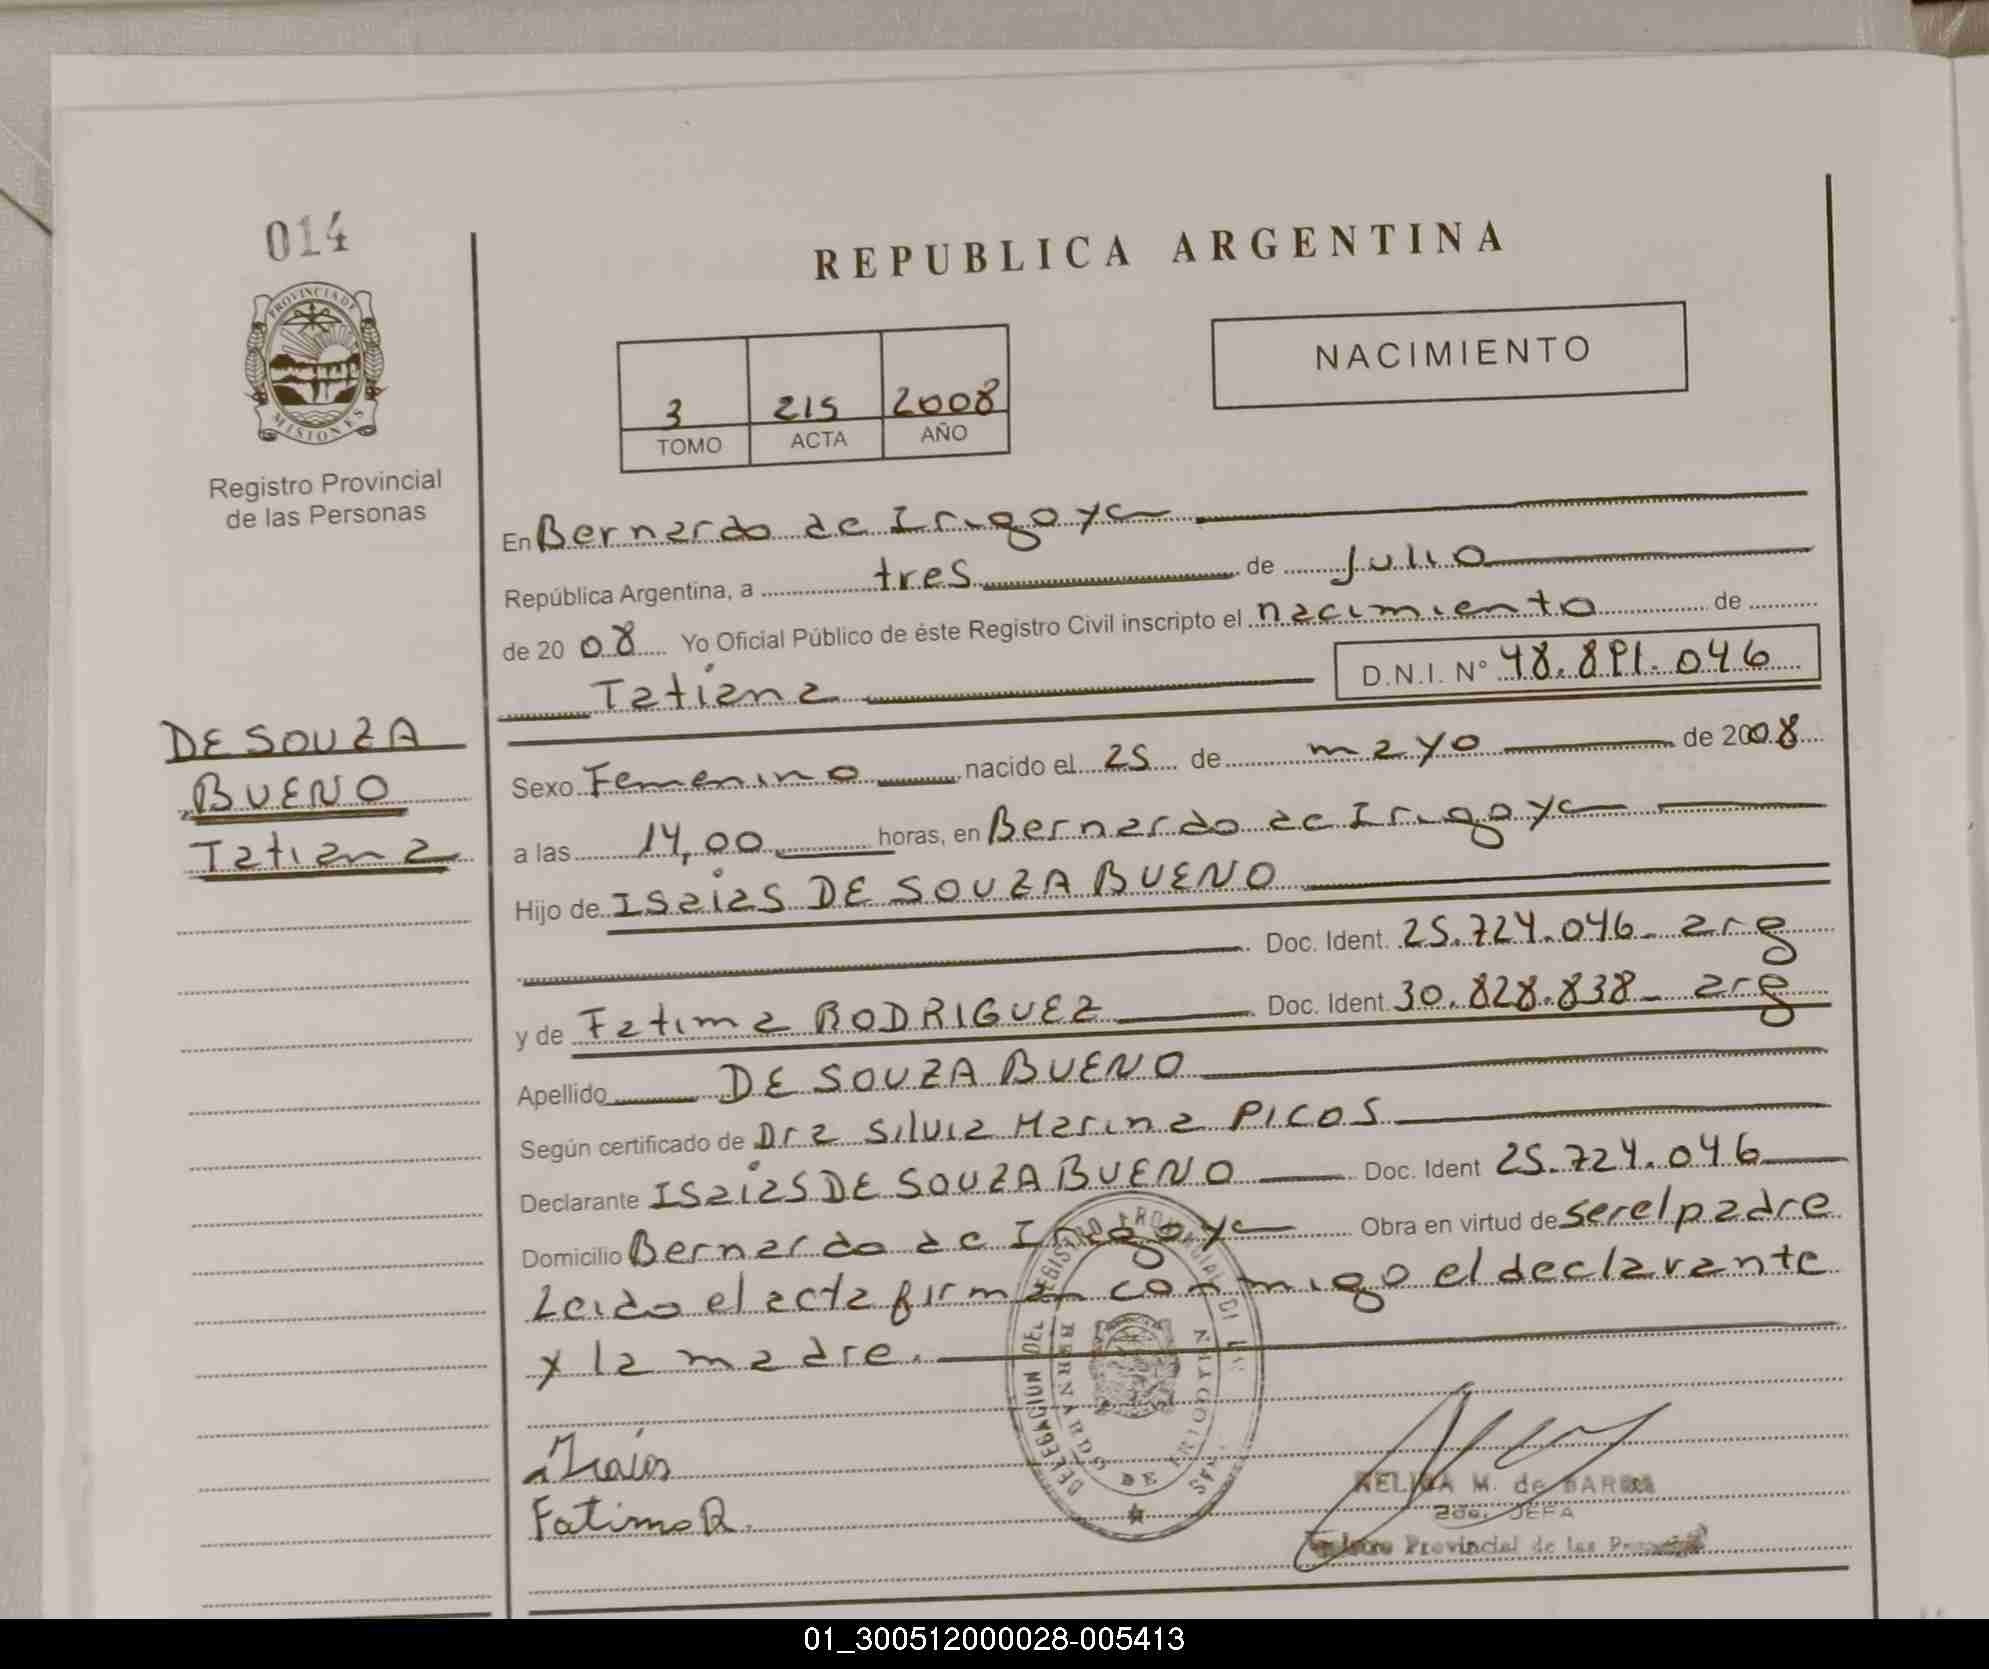 014
PROVINCIA DE
MISIONES
Registro Provincial
de las Personas
REPUBLICA ARGENTINA
3 215 2008
TOMO ACTA AÑO
NACIMIENTO
En Bernardo de Irigoye
República Argentina, a tres de Julio
de 2008 Yo Oficial Público de éste Registro Civil inscripto el nacimiento de
Tatiana D.N.I. Nº 48.891.046
DE SOUZA
BUENO
Tatiana
Sexo Femenino nacido el 25 de mayo de 2008
a las 14,00 horas, en Bernardo de Irigoye
Hijo de Isaias DE SOUZA BUENO
Doc. Ident. 25.724.046 - arg
y de Fatima RODRIGUEZ Doc. Ident. 30.828.838 - arg
Apellido DE SOUZA BUENO
Según certificado de Dra Silvia Marina PICOS
Declarante Isaias DE SOUZA BUENO Doc. Ident 25.724.046
Domicilio Bernardo de Irigoye Obra en virtud de ser el padre
Leido el acta firman conmigo el declarante
y la madre.
DELEGACION DEL REGISTRO PROVINCIAL DE
BERNARDO DE
Isaías
Fatima R.
M. de
2da. JEFA
Provincial de las
01_300512000028-005413